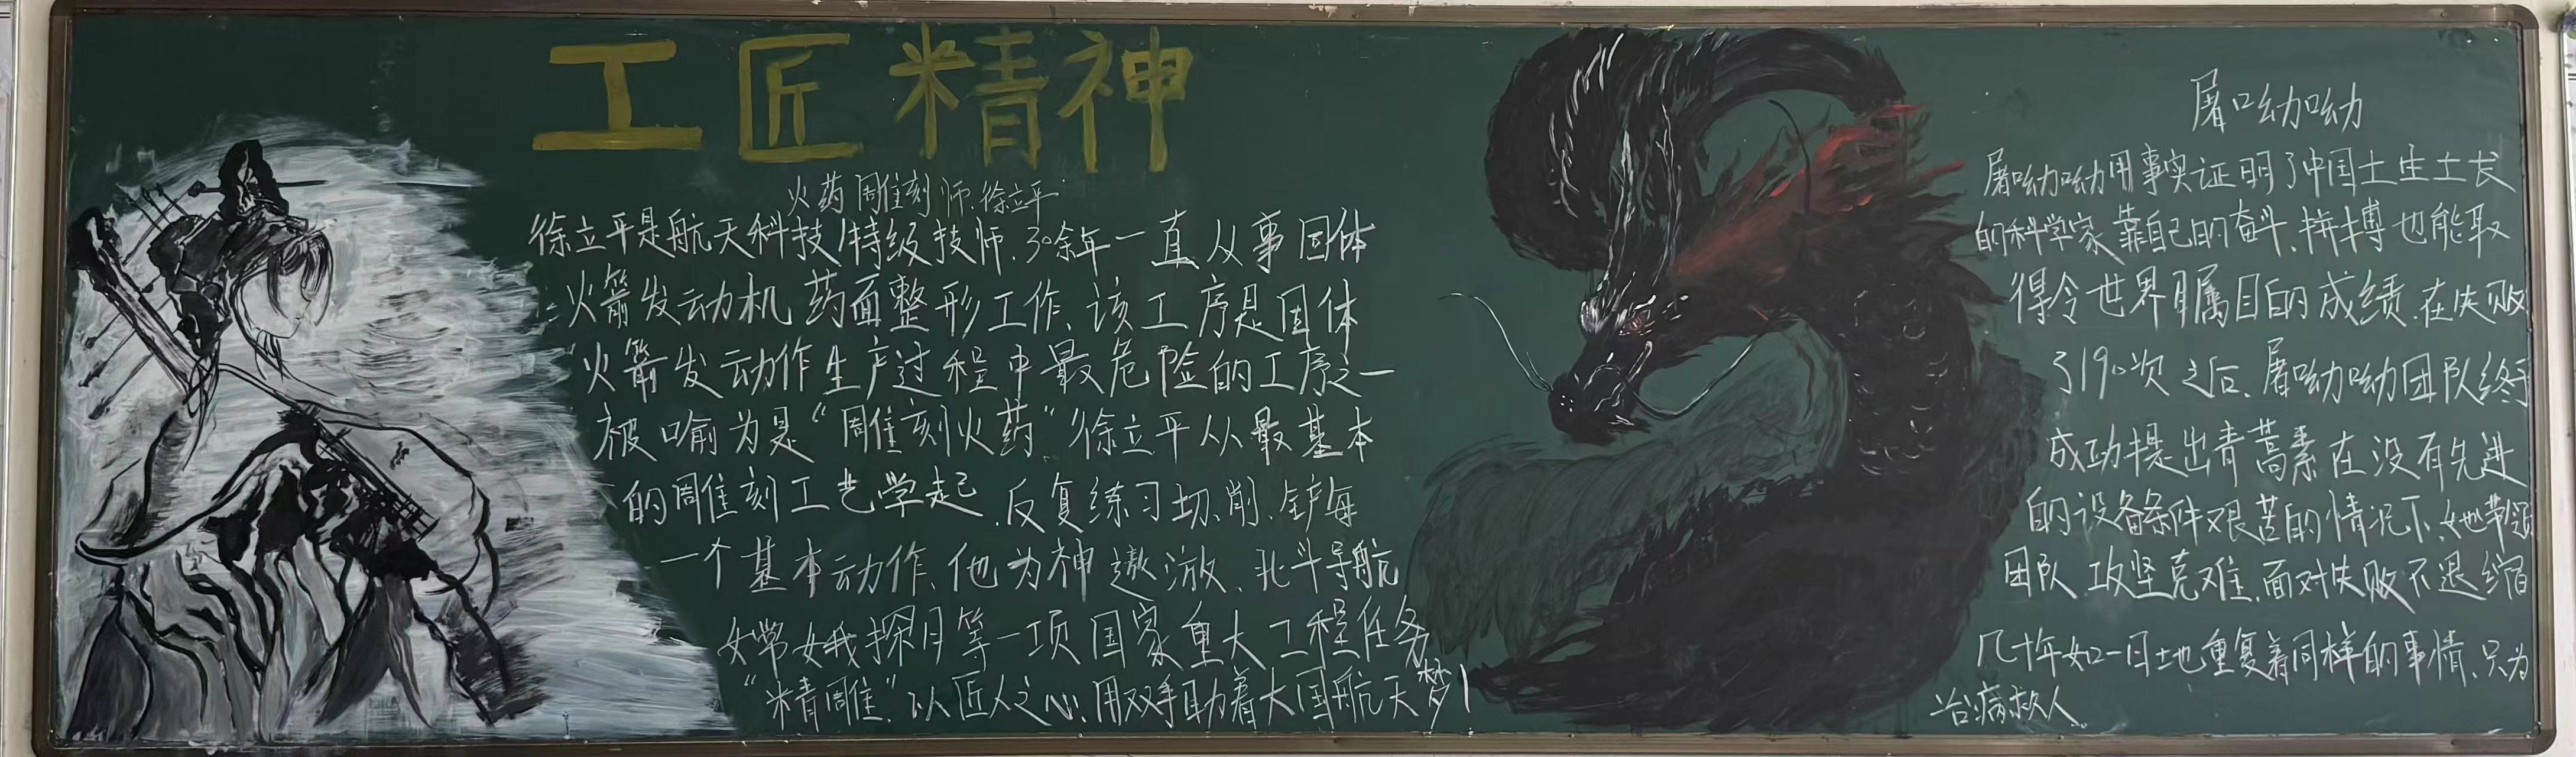 工匠精神
火药雕刻师.徐立平
徐立平是航天科技特级技师.30余年一直从事固体
火箭发动机药面整形工作、该工序是固体
火箭发动作生产过程中最危险的工序之一
被喻为是“雕刻火药”徐立平从最基本
的雕刻工艺学起.反复练习切、削、铲每
一个基本动作、他为神遨游、北斗导航
嫦娥探月等一项国家重大工程任务
“精雕”.以匠人之心.用双手助着大国航天梦!
屠呦呦
屠呦呦用事实证明了中国土生土长
的科学家靠自己的奋斗、拼搏也能取
得令世界瞩目的成绩.在失败
了190次之后、屠呦呦团队终于
成功提出青蒿素在没有先进
的设备条件艰苦的情况下、她带领
团队攻坚克难.面对失败不退缩
几十年如一日地重复着同样的事情、只为
治病救人。